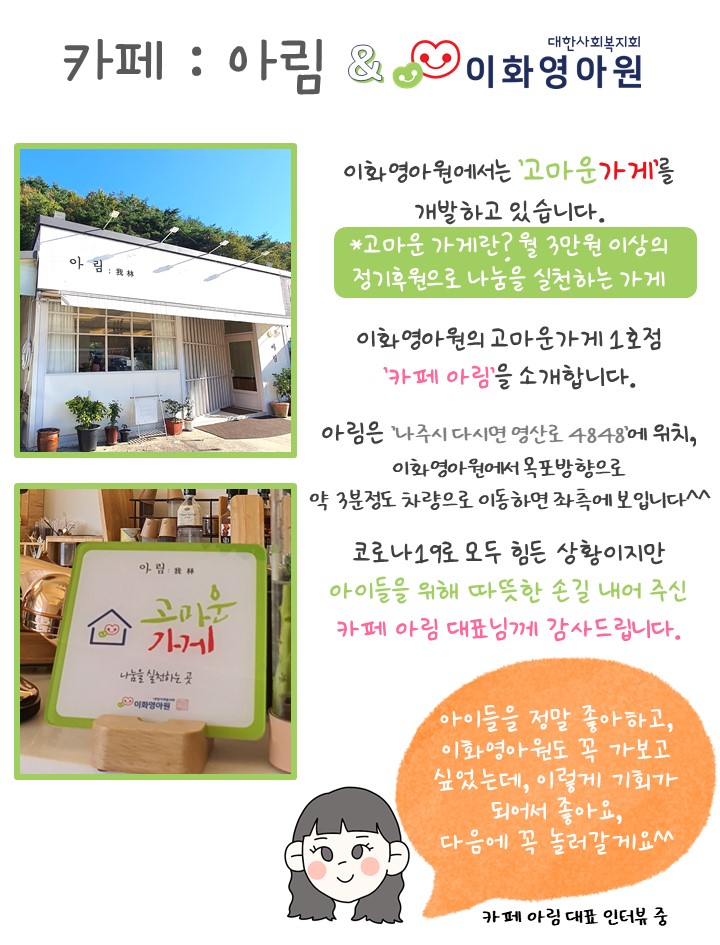 카페 : 아림 & 대한사회복지회 이화영아원
아림 : 我林
이화영아원에서는 '고마운가게'를
개발하고 있습니다.
*고마운 가게란? 월 3만원 이상의
정기후원으로 나눔을 실천하는 가게
이화영아원의 고마운가게 1호점
'카페 아림'을 소개합니다.
아림은 '나주시 다시면 영산로 4848'에 위치,
이화영아원에서 목포방향으로
약 3분정도 차량으로 이동하면 좌측에 보입니다^^
아림 : 我林
고마운
가게
나눔을 실천하는 곳
대한사회복지회
이화영아원
코로나19로 모두 힘든 상황이지만
아이들을 위해 따뜻한 손길 내어 주신
카페 아림 대표님께 감사드립니다.
아이들을 정말 좋아하고,
이화영아원도 꼭 가보고
싶었는데, 이렇게 기회가
되어서 좋아요,
다음에 꼭 놀러갈게요^^
카페 아림 대표 인터뷰 중